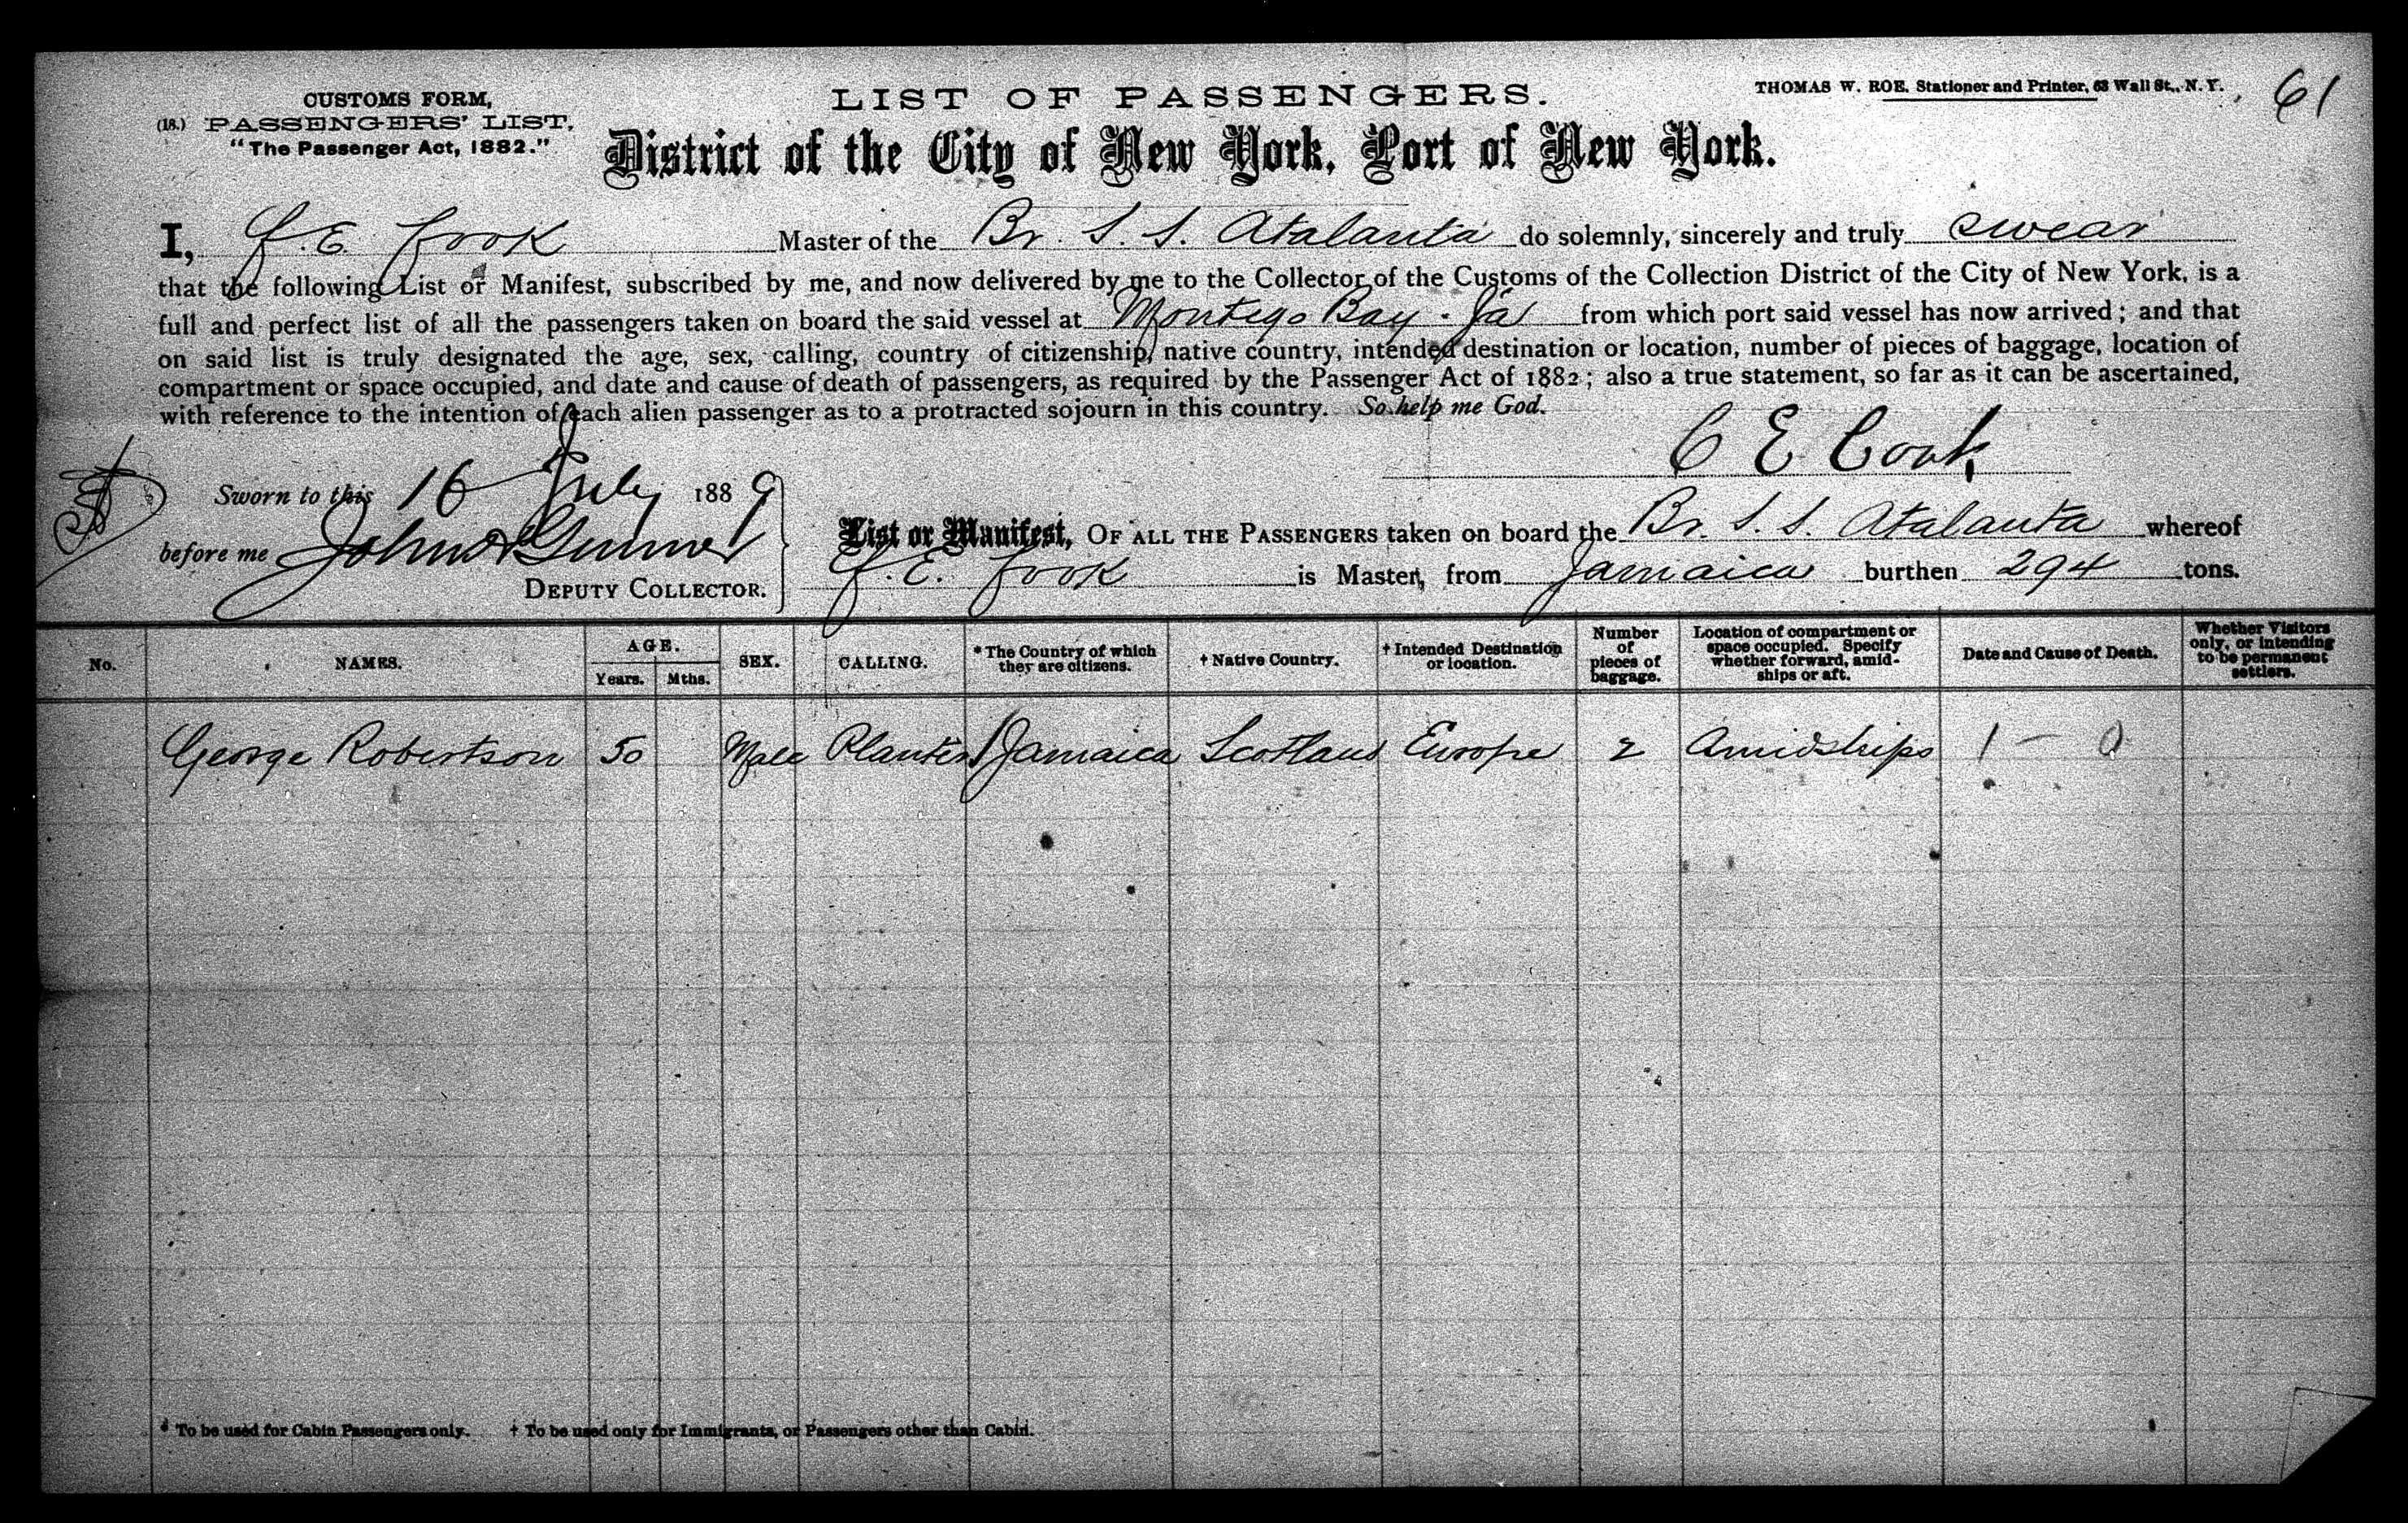 CUSTOMS FORM,
(18.) PASSENGERS' LIST,
"The Passenger Act, 1882."
LIST OF PASSENGERS.
THOMAS W. ROE, Stationer and Printer, 63 Wall St., N. Y.
61
District of the City of New York, Port of New York.
I, C. E. Cook Master of the Br. S. S. Atalanta do solemnly, sincerely and truly swear
that the following List or Manifest, subscribed by me, and now delivered by me to the Collector of the Customs of the Collection District of the City of New York, is a
full and perfect list of all the passengers taken on board the said vessel at Montego Bay - Ja from which port said vessel has now arrived; and that
on said list is truly designated the age, sex, calling, country of citizenship, native country, intended destination or location, number of pieces of baggage, location of
compartment or space occupied, and date and cause of death of passengers, as required by the Passenger Act of 1882; also a true statement, so far as it can be ascertained,
with reference to the intention of each alien passenger as to a protracted sojourn in this country. So help me God.
C E Cook
Sworn to this 16 July 1889
before me John
DEPUTY COLLECTOR.
List or Manifest, OF ALL THE PASSENGERS taken on board the Br. S. S. Atalanta whereof
C. E. Cook is Master, from Jamaica burthen 294 tons.
No. NAMES. AGE. Years. Mths. SEX. CALLING. * The Country of which they are citizens. † Native Country. † Intended Destination or location. Number of pieces of baggage. Location of compartment or space occupied. Specify whether forward, amidships or aft. Date and Cause of Death. Whether Visitors only, or intending to be permanent settlers.
George Robertson 50 Male Planter Jamaica Scotland Europe 2 Amidships 1 — 0
* To be used for Cabin Passengers only. † To be used only for Immigrants, or Passengers other than Cabin.